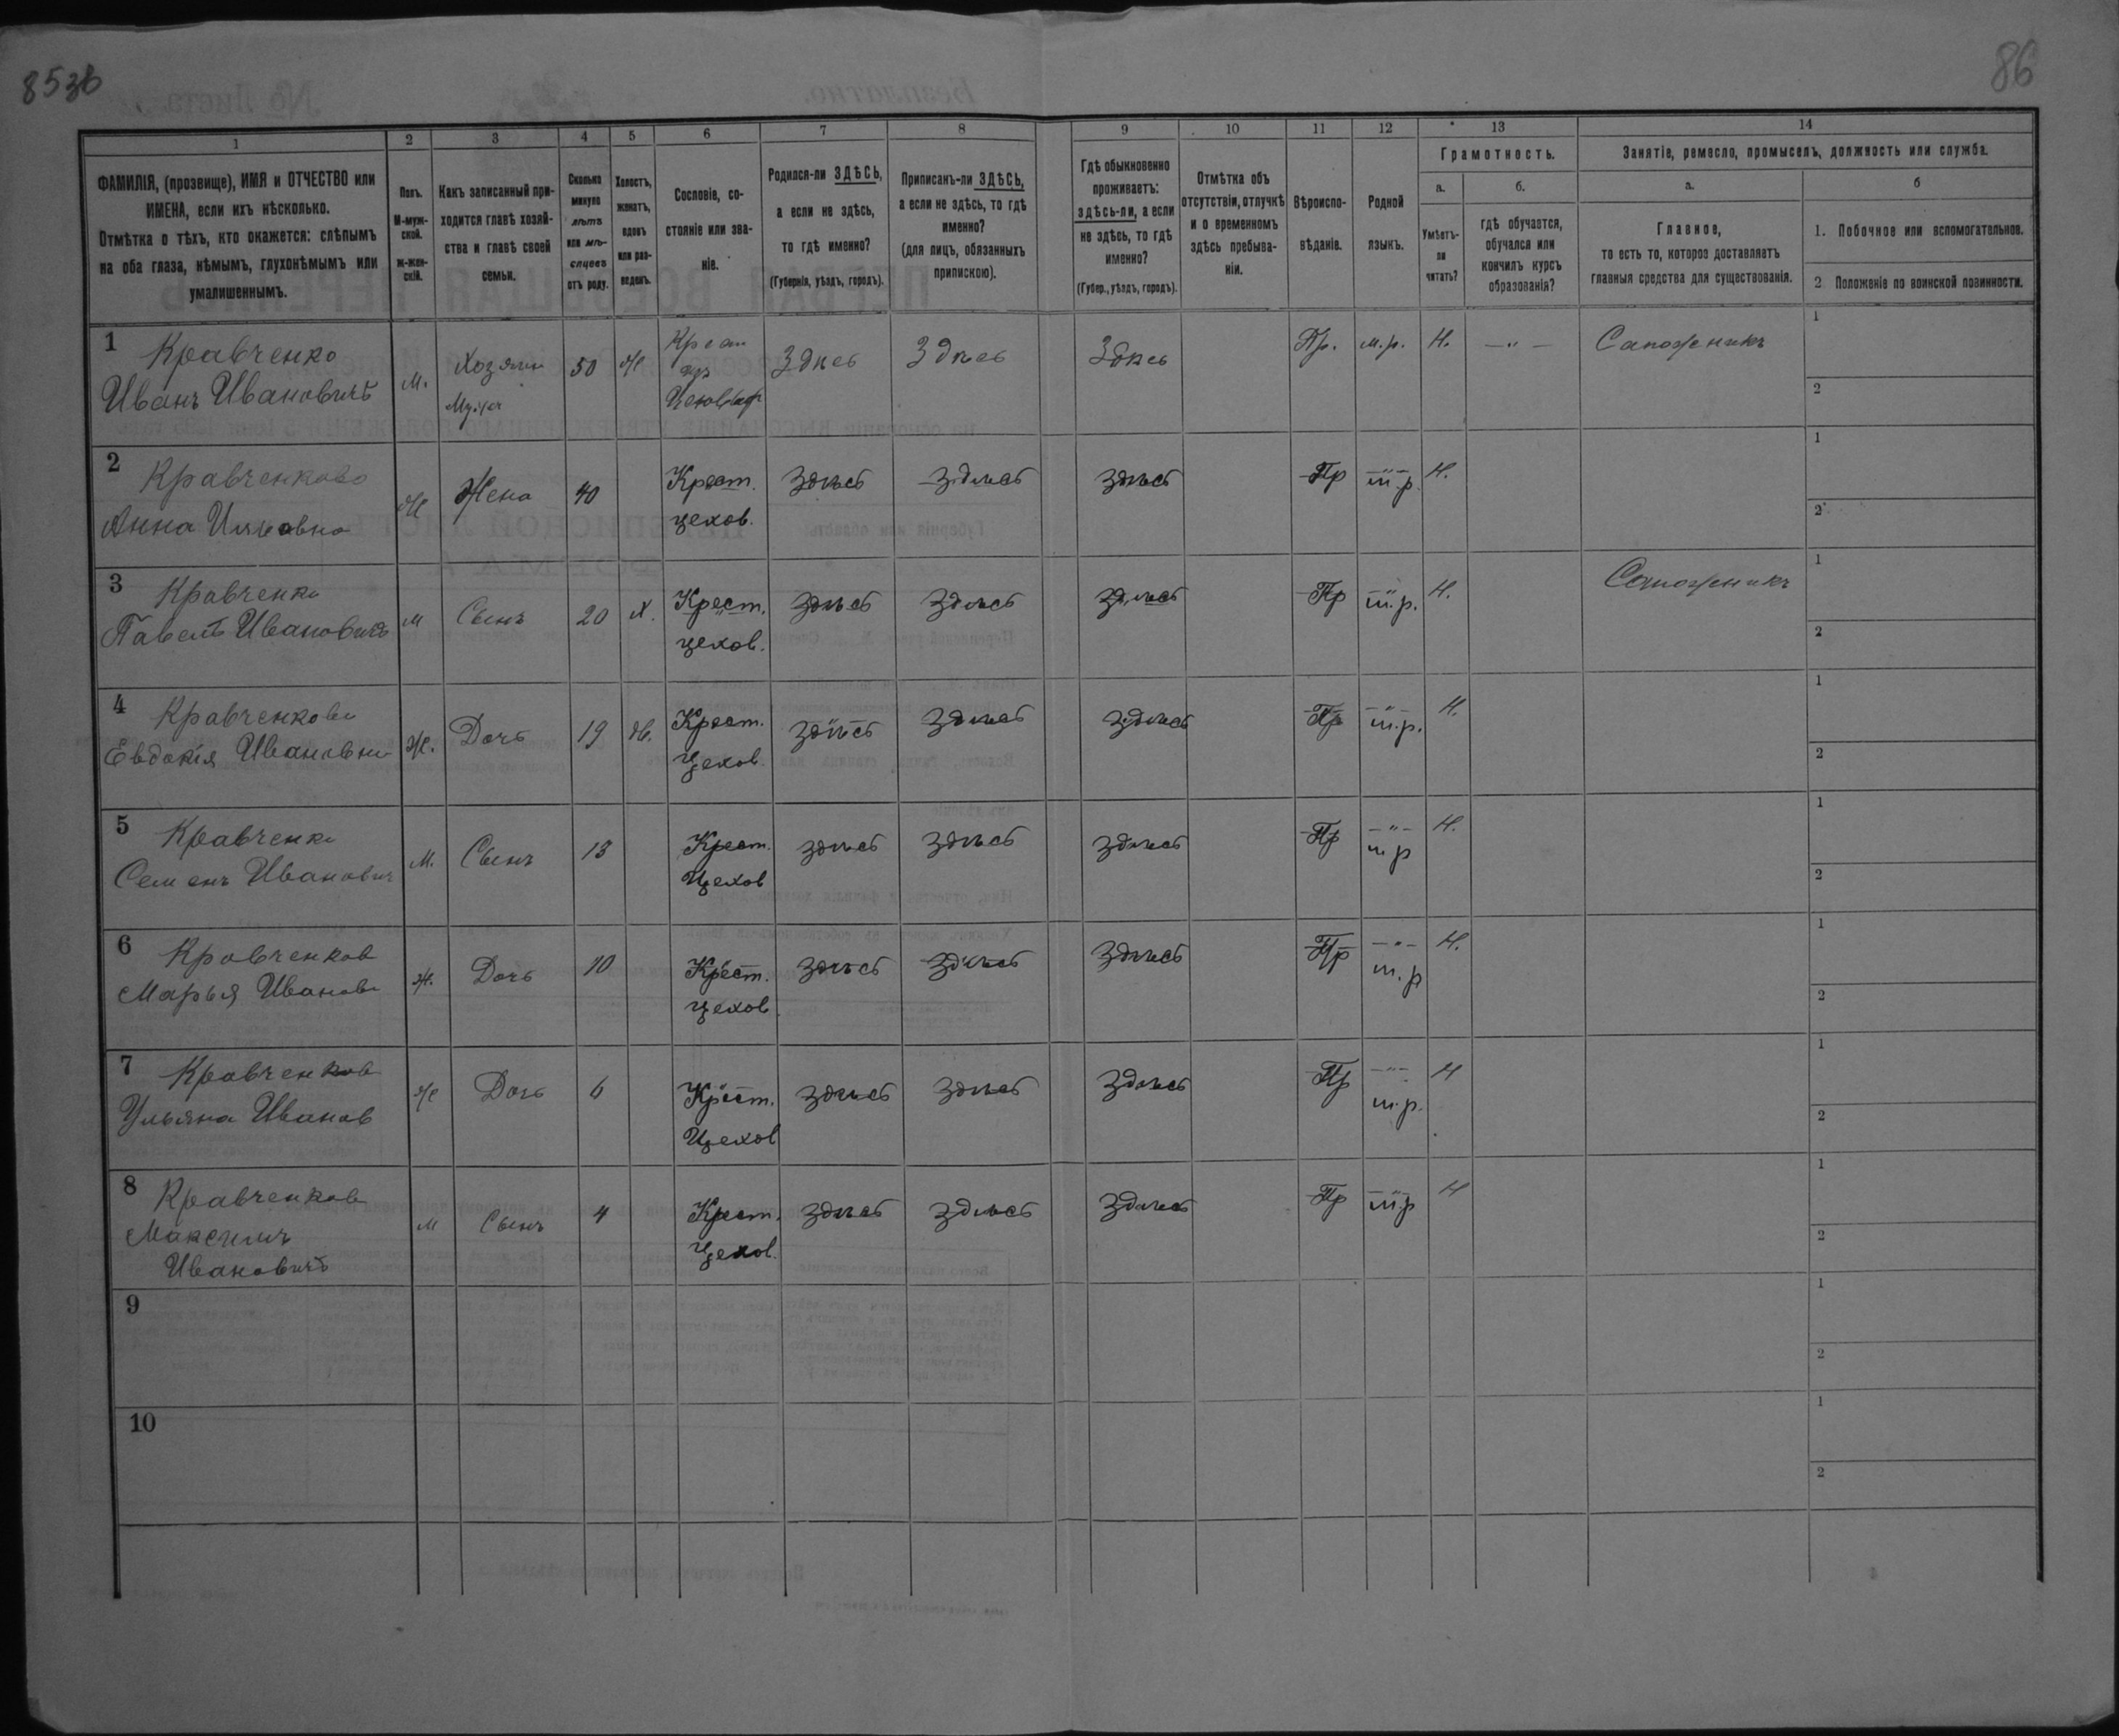 853б
86
1 2 3 4 5 6 7 8 9 10 11 12 13 14
ФАМИЛІЯ, (прозвище), ИМЯ и ОТЧЕСТВО или
ИМЕНА, если ихъ нѣсколько.
Отмѣтка о тѣхъ, кто окажется: слѣпымъ
на оба глаза, нѣмымъ, глухонѣмымъ или
умалишеннымъ.
Полъ.
М-муж-
ской.
ж-жен-
скій.
Какъ записанный при-
ходится главѣ хозяй-
ства и главѣ своей
семьи.
Сколько
минуло
лѣтъ
или мѣ-
сяцевъ
отъ роду.
Холостъ,
женатъ,
вдовъ
или раз-
веденъ.
Сословіе, со-
стояніе или зва-
ніе.
Родился-ли ЗДѢСЬ,
а если не здѣсь,
то гдѣ именно?
(Губернія, уѣздъ, городъ).
Приписанъ-ли ЗДѢСЬ,
а если не здѣсь, то гдѣ
именно?
(для лицъ, обязанныхъ
припискою).
Гдѣ обыкновенно
проживаетъ:
здѣсь-ли, а если
не здѣсь, то гдѣ
именно?
(Губер., уѣздъ, городъ).
Отмѣтка объ
отсутствіи, отлучкѣ
и о временномъ
здѣсь пребыва-
ніи.
Вѣроиспо-
вѣданіе.
Родной
языкъ.
Грамотность.
а.
Умѣетъ-
ли
читать?
б.
гдѣ обучается,
обучался или
кончилъ курсъ
образованія?
Занятіе, ремесло, промыселъ, должность или служба.
а.
Главное,
то есть то, которое доставляетъ
главныя средства для существованія.
б
1. Побочное или вспомогательное.
2 Положеніе по воинской повинности.
1 Кравченко М. Хозяин 50 Ж Крест Здѣсь Здѣсь Здѣсь Пр. м.р. Н. —"— Сапожникъ 1
Иванъ Ивановичъ 2
2 Кравченкова Ж Жена 40 Крест. Здѣсь Здѣсь Здѣсь Пр —"— Н. 1
Анна цехов. м.р. 2
3 Кравченко М Сынъ 20 Х. Крест. Здѣсь Здѣсь Здѣсь Пр м.р. Н. Сапожникъ 1
Павелъ Ивановичъ цехов. 2
4 Кравченкова Ж. Дочь 19 дѣ. Крест. Здѣсь Здѣсь Здѣсь Пр —"— Н. 1
Евдокія Ивановна Цехов. м.р. 2
5 Кравченко М. Сынъ 13 Крест. Здѣсь Здѣсь Здѣсь Пр —"— Н. 1
Семенъ Иванович Цехов м.р 2
6 Кравченков Ж. Дочь 10 Крест. Здѣсь Здѣсь Здѣсь Пр —"— Н. 1
Марья Иванова цехов. м.р 2
7 Кравченков Ж Дочь 6 Крест. Здѣсь Здѣсь Здѣсь Пр —"— Н 1
Ульяна Иванов Цехов м.р. 2
8 Кравченков М Сынъ 4 Крест. Здѣсь Здѣсь Здѣсь Пр м.р Н 1
Максимъ Цехов. 2
Ивановичъ
9 1
2
10 1
2